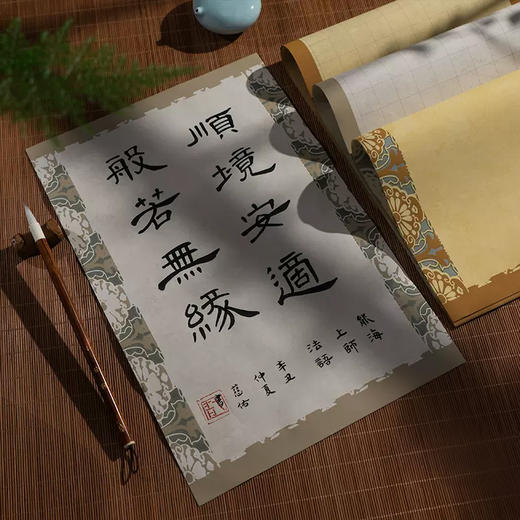 順境安適
般若無緣
能海
上師
法語
辛丑
仲夏
慈佑